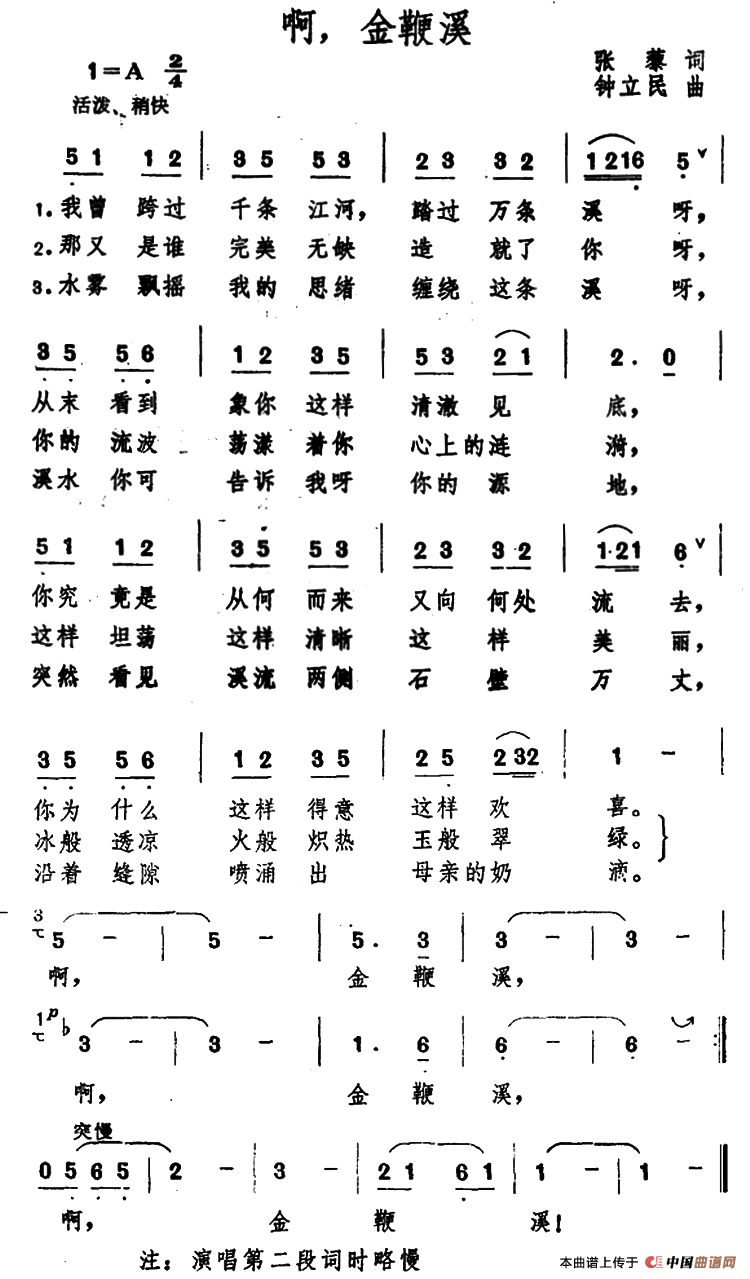 啊，金鞭溪
1=A 2/4
张藜 词
钟立民 曲
活泼、稍快
5 1 1 2 | 3 5 5 3 | 2 3 3 2 | 1216 5 ∨ |
1.我曾 跨过 千条 江河，踏过 万条 溪 呀，
2.那又 是谁 完美 无缺 造 就了 你 呀，
3.水雾 飘摇 我的 思绪 缠绕 这条 溪 呀，
3 5 5 6 | 1 2 3 5 | 5 3 2 1 | 2. 0 |
从末 看到 象你 这样 清澈 见 底，
你的 流波 荡漾 着你 心上的 涟 漪，
溪水 你可 告诉 我呀 你的 源 地，
5 1 1 2 | 3 5 5 3 | 2 3 3·2 | 1·21 6 ∨ |
你究 竟是 从何 而来 又向 何处 流 去，
这样 坦荡 这样 清晰 这 样 美 丽，
突然 看见 溪流 两侧 石 壁 万 丈，
3 5 5 6 | 1 2 3 5 | 2 5 2 32 | 1 － |
你为 什么 这样 得意 这样 欢 喜。
冰般 透凉 火般 炽热 玉般 翠 绿。
沿着 缝隙 喷涌 出 母亲的奶 滴。
3 5 － | 5 － | 5. 3 | 3 － | 3 － |
啊， 金 鞭 溪，
1 p ♭3 － | 3 － | 1. 6 | 6 － | 6 － :‖
啊， 金 鞭 溪，
突慢
0 5 6 5 | 2 － | 3 － | 2 1 6 1 | 1 － | 1 － ‖
啊， 金 鞭 溪！
注：演唱第二段词时略慢
本曲谱上传于 中国曲谱网